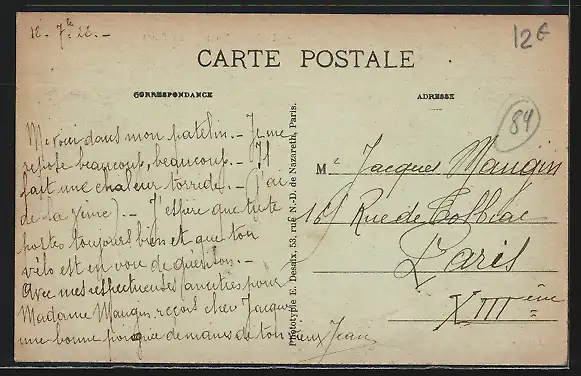 12. 7bre 22. -
12€
CARTE POSTALE
CORRESPONDANCE
ADRESSE
84
Me voici dans mon patelin. - Je me
repose beaucoup, beaucoup. - Il
fait une chaleur torride. - (J'ai
de la veine). - J'espère que tu te
portes toujours bien et que ton
vélo est en voie de guérison. -
Avec mes respectueuses amitiés pour
Madame Maugin reçois cher Jacques
une bonne poignée de mains de ton vieux Jean
Phototypie E. Desaix, 53, rue N.-D. de Nazareth, Paris.
M Jacques Maugin
161 Rue de Tolbiac
Paris
XIIIème